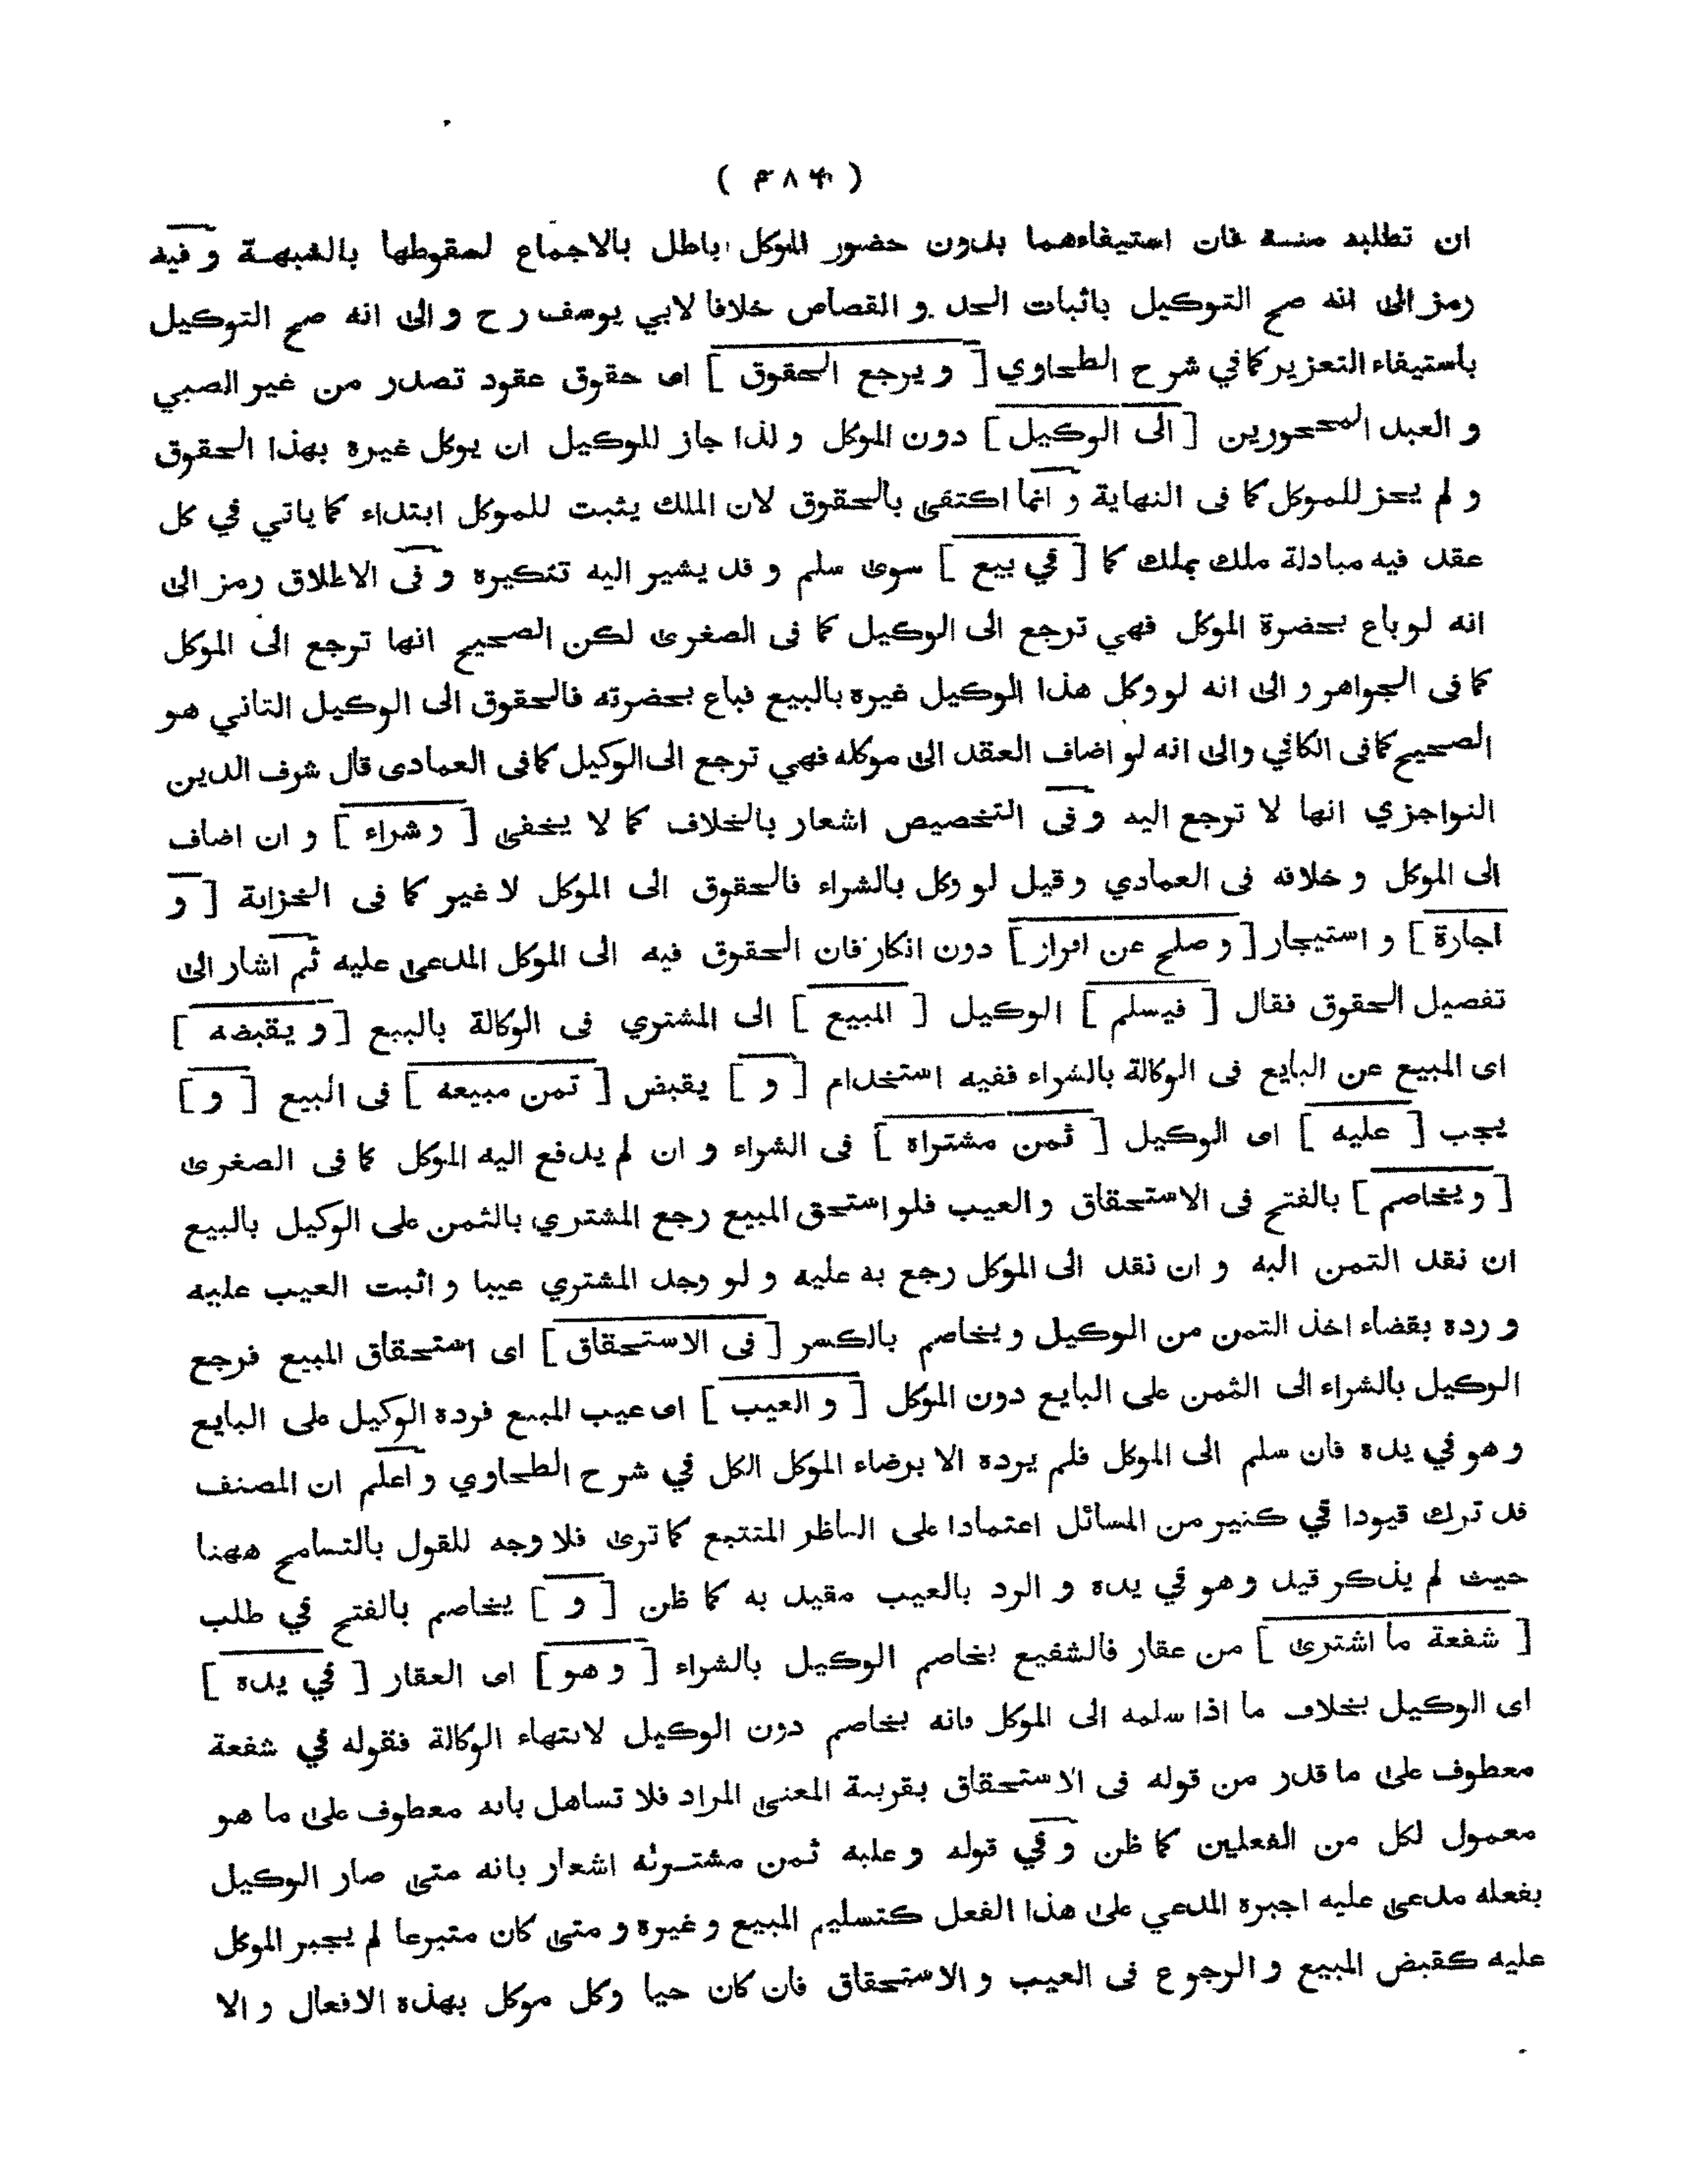 ( ۴۸۴ )
ان تطلبه منـه فان استيفاءهما بدون حضور الموكل باطل بالاجماع لسقوطها بالشبهـة و فيه
رمز الى انه صح التوكيل باثبات الحد و القصاص خلافا لابي يوسف رح و الى انه صح التوكيل
باستيفاء التعزير كما في شرح الطحاوي [ و يرجع الحقوق ] اى حقوق عقود تصدر من غير الصبي
و العبد المحجورين [ الى الوكيل ] دون الموكل و لذا جاز للوكيل ان يوكل غيره بهذا الحقوق
و لم يجز للموكل كما فى النهاية و انما اكتفى بالحقوق لان الملك يثبت للموكل ابتداء كما ياتي في كل
عقد فيه مبادلة ملك بملك كما [ في بيع ] سوى سلم و قد يشير اليه تنكيره و فى الاطلاق رمز الى
انه لو باع بحضرة الموكل فهي ترجع الى الوكيل كما فى الصغرى لكن الصحيح انها ترجع الى الموكل
كما فى الجواهر و الى انه لو وكل هذا الوكيل غيره بالبيع فباع بحضرته فالحقوق الى الوكيل الثاني هو
الصحيح كما فى الكافي و الى انه لو اضاف العقد الى موكله فهي ترجع الى الوكيل كما فى العمادى قال شرف الدين
النواجزي انها لا ترجع اليه و فى التخصيص اشعار بالخلاف كما لا يخفى [ و شراء ] و ان اضاف
الى الموكل و خلافه فى العمادي و قيل لو وكل بالشراء فالحقوق الى الموكل لا غير كما فى الخزانة [ و
اجارة ] و استيجار [ و صلح عن اقرار ] دون انكار فان الحقوق فيه الى الموكل المدعى عليه ثم اشار الى
تفصيل الحقوق فقال [ فيسلم ] الوكيل [ المبيع ] الى المشتري فى الوكالة بالبيع [ و يقبضه ]
اى المبيع عن البايع فى الوكالة بالشراء ففيه استخدام [ و ] يقبض [ ثمن مبيعه ] فى البيع [ و ]
يجب [ عليه ] اى الوكيل [ ثمن مشتراه ] فى الشراء و ان لم يدفع اليه الموكل كما فى الصغرى
[ و يخاصم ] بالفتح فى الاستحقاق و العيب فلو استحق المبيع رجع المشتري بالثمن على الوكيل بالبيع
ان نقد الثمن اليه و ان نقد الى الموكل رجع به عليه و لو وجد المشتري عيبا و اثبت العيب عليه
و رده بقضاء اخذ الثمن من الوكيل و يخاصم بالكسر [ فى الاستحقاق ] اى استحقاق المبيع فرجع
الوكيل بالشراء الى الثمن على البايع دون الموكل [ و العيب ] اى عيب المبيع فرده الوكيل على البايع
و هو في يده فان سلم الى الموكل فلم يرده الا برضاء الموكل الكل في شرح الطحاوي و اعلم ان المصنف
قد ترك قيودا في كثير من المسائل اعتمادا على الناظر المتتبع كما ترى فلا وجه للقول بالتسامح ههنا
حيث لم يذكر قيد و هو في يده و الرد بالعيب مقيد به كما ظن [ و ] يخاصم بالفتح في طلب
[ شفعة ما اشترى ] من عقار فالشفيع يخاصم الوكيل بالشراء [ و هو ] اى العقار [ في يده ]
اى الوكيل بخلاف ما اذا سلمه الى الموكل فانه يخاصم دون الوكيل لانتهاء الوكالة فقوله في شفعة
معطوف على ما قدر من قوله فى الاستحقاق بقرينة المعنى المراد فلا تساهل بانه معطوف على ما هو
معمول لكل من الفعلين كما ظن و في قوله و عليه ثمن اشعار بانه متى صار الوكيل
بفعله مدعى عليه اجبره المدعي على هذا الفعل كتسليم المبيع و غيره و متى كان متبرعا لم يجبر الموكل
عليه كقبض المبيع و الرجوع فى العيب و الاستحقاق فان كان حيا وكل موكل بهذه الافعال و الا